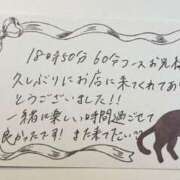 18時50分 60分コースお兄様
久しぶりにお店に来てくれてあり
とうございました!!
一緒に楽しい時間過ごせて
良かったです! また来てたい